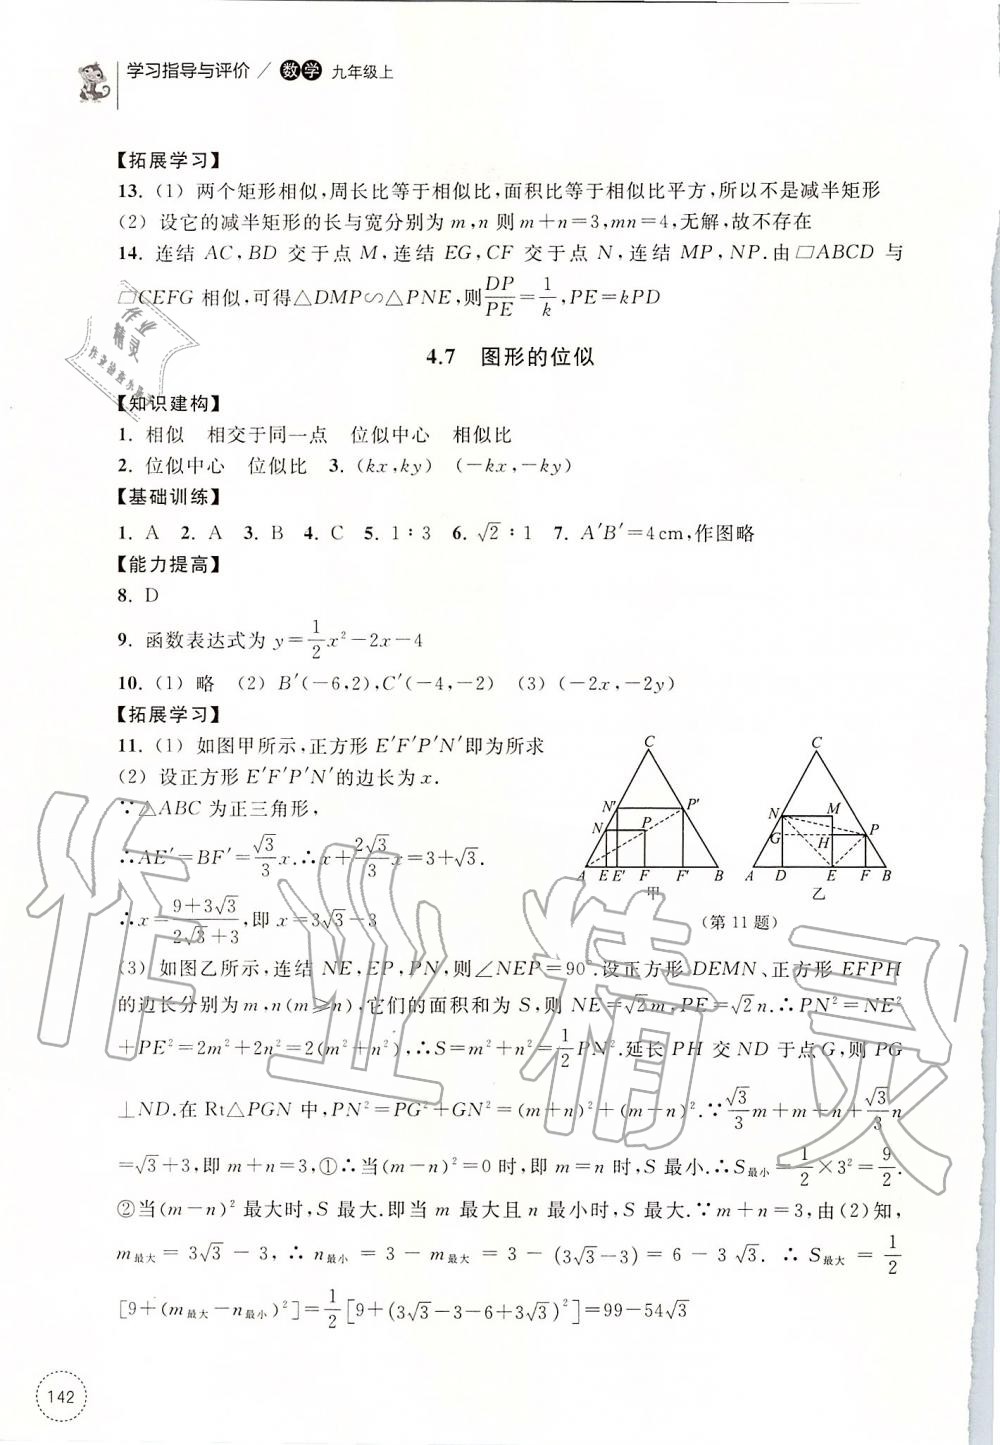 学习指导与评价 / 数学 九年级上
【拓展学习】
13. (1) 两个矩形相似,周长比等于相似比,面积比等于相似比平方,所以不是减半矩形
(2) 设它的减半矩形的长与宽分别为 m,n 则 m+n=3,mn=4,无解,故不存在
14. 连结 AC,BD 交于点 M,连结 EG,CF 交于点 N,连结 MP,NP.由 □ABCD 与
□CEFG 相似,可得△DMP∽△PNE,则DP/PE=1/k,PE=kPD
4.7 图形的位似
【知识建构】
1. 相似 相交于同一点 位似中心 相似比
2. 位似中心 位似比 3. (kx,ky) (-kx,-ky)
【基础训练】
1. A 2. A 3. B 4. C 5. 1∶3 6. √2∶1 7. A′B′=4cm,作图略
【能力提高】
8. D
9. 函数表达式为 y=1/2x²-2x-4
10. (1) 略 (2) B′(-6,2),C′(-4,-2) (3) (-2x,-2y)
【拓展学习】
11. (1) 如图甲所示,正方形 E′F′P′N′即为所求
(2) 设正方形 E′F′P′N′的边长为 x.
∵△ABC 为正三角形,
∴AE′=BF′=√3/3x.∴x+2√3/3x=3+√3.
∴x=(9+3√3)/(2√3+3),即 x=3√3-3
C
N′ P′
N P
A E E′ F F′ B
甲
C
N M
G H P
A D E F B
乙
(第 11 题)
(3) 如图乙所示,连结 NE,EP,PN,则∠NEP=90°.设正方形 DEMN、正方形 EFPH
的边长分别为 m,n(m≥n),它们的面积和为 S,则 NE=√2m,PE=√2n.∴PN²=NE²
+PE²=2m²+2n²=2(m²+n²),∴S=m²+n²=1/2PN².延长 PH 交 ND 于点G,则 PG
⊥ND.在 Rt△PGN 中,PN²=PG²+GN²=(m+n)²+(m-n)².∵√3/3m+m+n+√3/3n
=√3+3,即 m+n=3,①∴当(m-n)²=0 时,即 m=n 时,S 最小.∴S最小=1/2×3²=9/2.
②当(m-n)² 最大时,S 最大.即当 m 最大且 n 最小时,S 最大.∵m+n=3,由(2)知,
m最大=3√3-3,∴n最小=3-m最大=3-(3√3-3)=6-3√3.∴S最大=1/2
[9+(m最大-n最小)²]=1/2[9+(3√3-3-6+3√3)²]=99-54√3
142
作业精灵